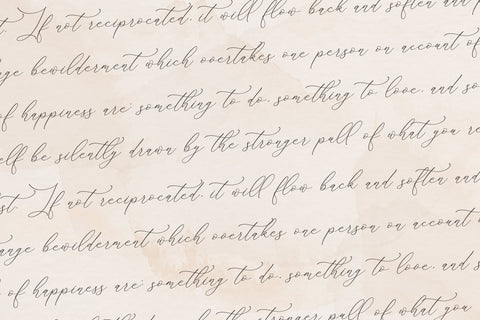 t. If not reciprocated, it will flow back and soften and p
nge bewilderment which overtakes one person on account of
of happiness are: something to do, something to love, and so
elf be silently drawn by the stronger pull of what you re
st. If not reciprocated, it will flow back and soften and
ange bewilderment which overtakes one person on account
of happiness are: something to do, something to love, and s
by the stronger pull of what you